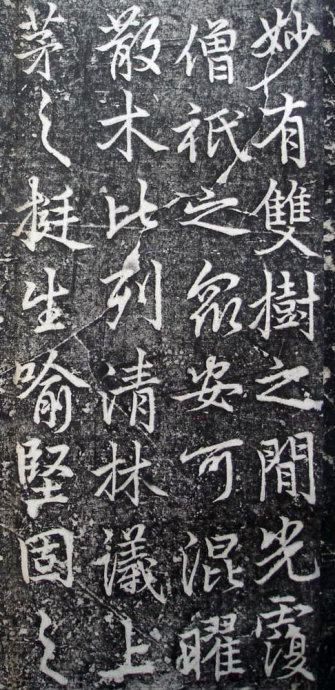 妙有雙樹之間光覆
僧祇之衆安可混曜
散木比列清林議上
茅之挺生喻堅固之